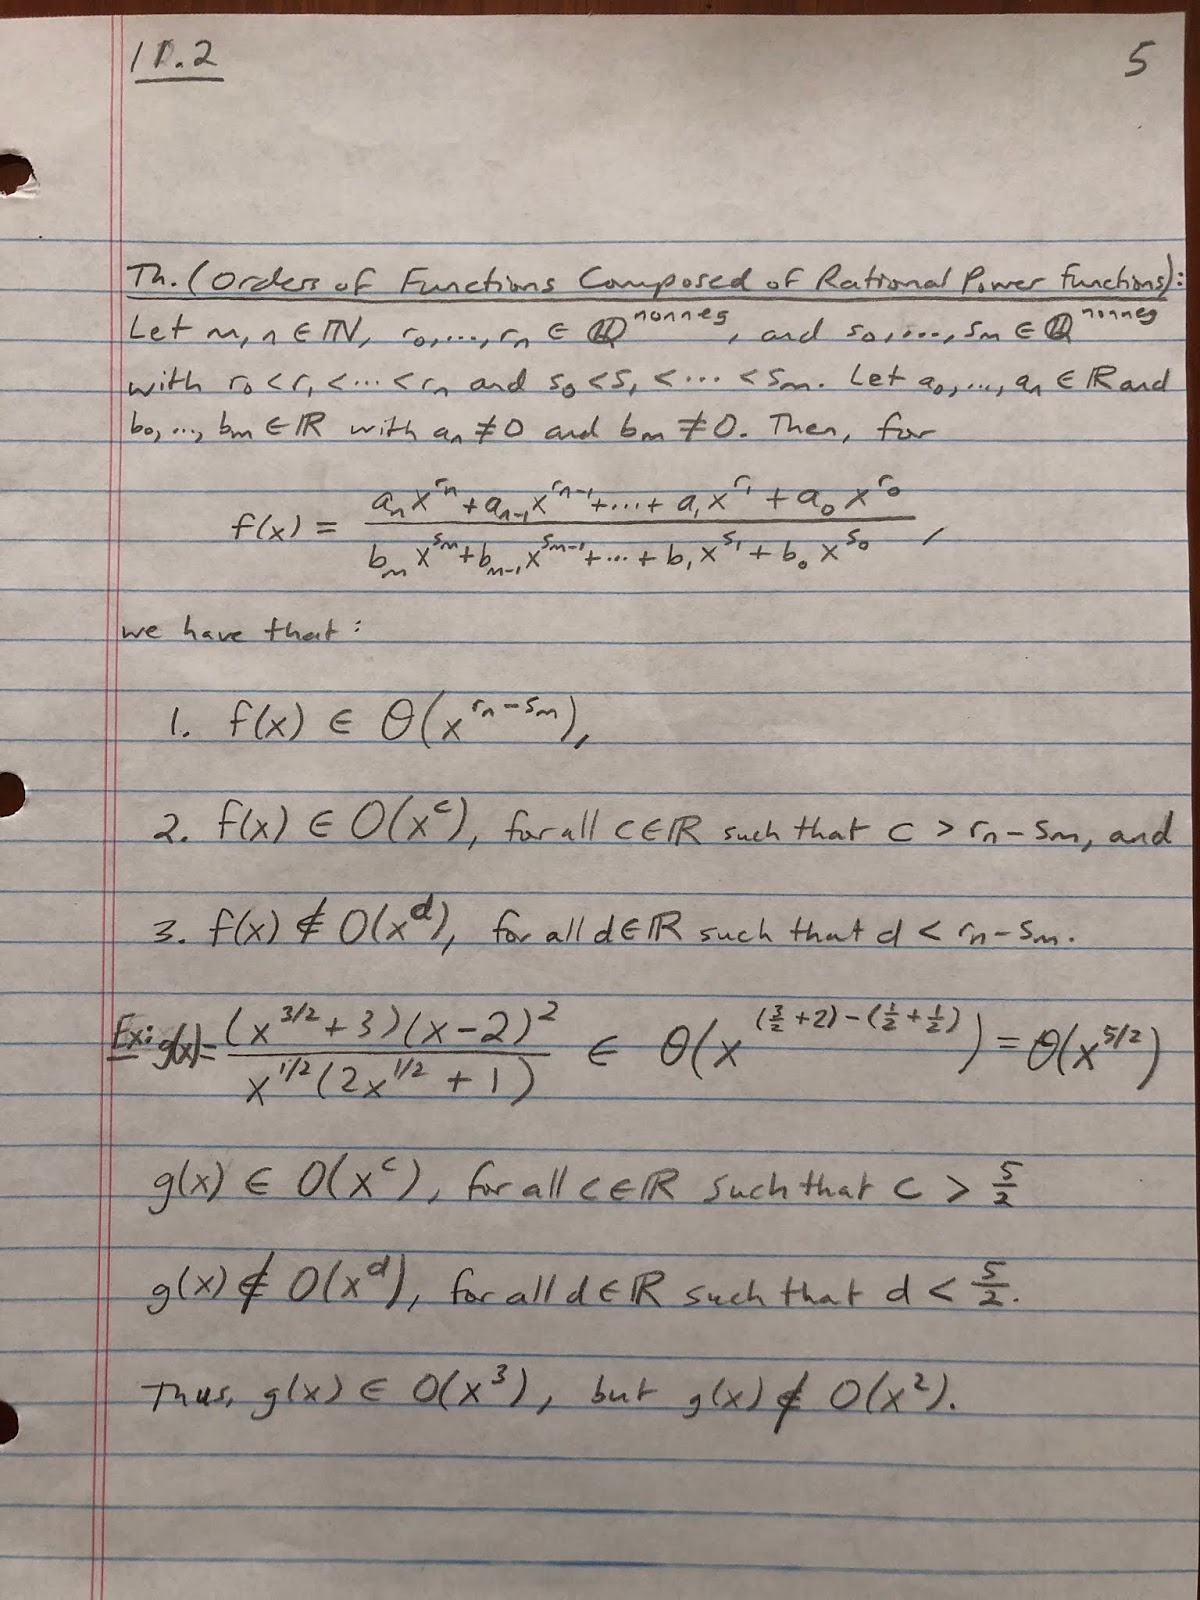 11.2
5
Th. (Orders of Functions Composed of Rational Power Functions):
Let m, n ∈ ℕ, r₀, ..., rₙ ∈ ℚ^nonneg, and s₀, ..., sₘ ∈ ℚ^nonneg
with r₀ < r₁ < ... < rₙ and s₀ < s₁ < ... < sₘ. Let a₀, ..., aₙ ∈ ℝ and
b₀, ..., bₘ ∈ ℝ with aₙ ≠ 0 and bₘ ≠ 0. Then, for
f(x) = (aₙ x^(rₙ) + aₙ₋₁ x^(rₙ₋₁) + ... + a₁ x^(r₁) + a₀ x^(r₀)) / (bₘ x^(sₘ) + bₘ₋₁ x^(sₘ₋₁) + ... + b₁ x^(s₁) + b₀ x^(s₀)),
we have that:
1. f(x) ∈ Θ(x^(rₙ - sₘ)),
2. f(x) ∈ O(x^c), for all c ∈ ℝ such that c > rₙ - sₘ, and
3. f(x) ∉ O(x^d), for all d ∈ ℝ such that d < rₙ - sₘ.
Ex: g(x) = (x^(3/2) + 3)(x - 2)² / (x^(1/2) (2x^(1/2) + 1)) ∈ Θ(x^((3/2 + 2) - (1/2 + 1/2))) = Θ(x^(5/2))
g(x) ∈ O(x^c), for all c ∈ ℝ such that c > 5/2
g(x) ∉ O(x^d), for all d ∈ ℝ such that d < 5/2.
Thus, g(x) ∈ O(x³), but g(x) ∉ O(x²).